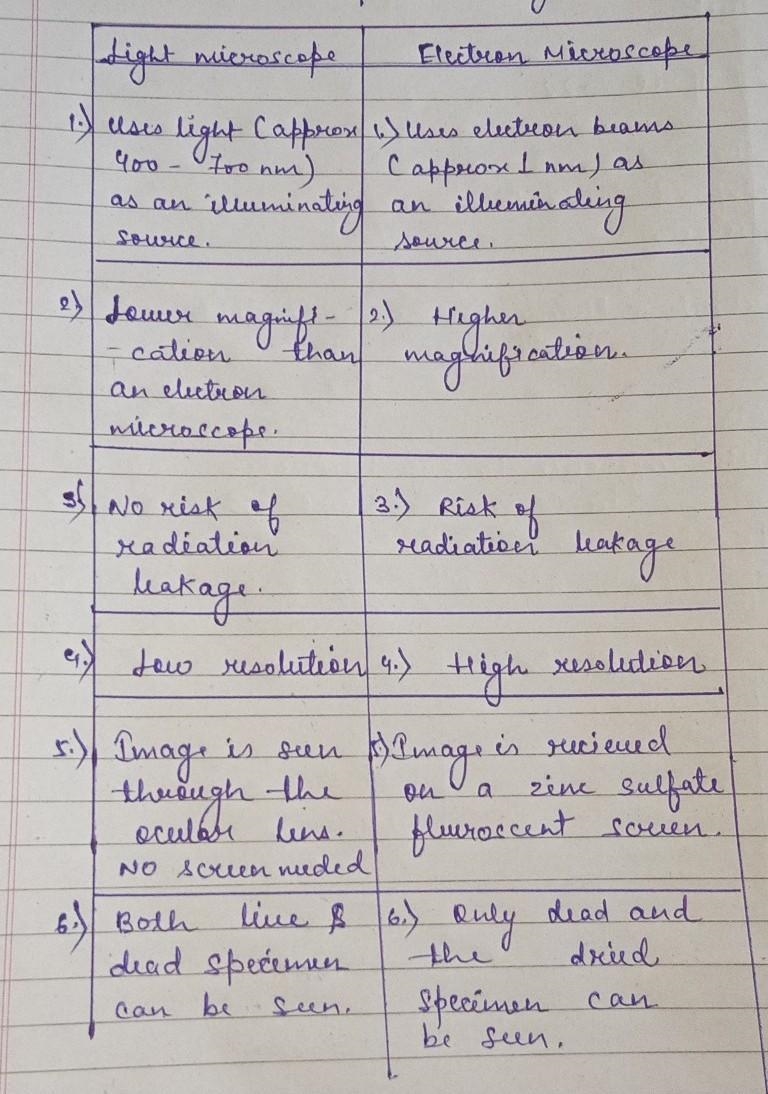 Light microscope
Electron Microscope
1.) Uses light (approx
400 - 700 nm)
as an illuminating
source.
1.) Uses electron beams
(approx 1 nm) as
an illuminating
source.
2) Lower magnifi-
-cation than
an electron
microscope.
2.) Higher
magnification.
3) No risk of
radiation
leakage.
3.) Risk of
radiation leakage
4.) Low resolution
4.) High resolution
5.) Image is seen
through the
ocular lens.
No screen needed
5.) Image is recieved
on a zinc sulfate
fluroccent screen.
6.) Both live &
dead specimen
can be seen.
6.) Only dead and
the dried
specimen can
be seen.